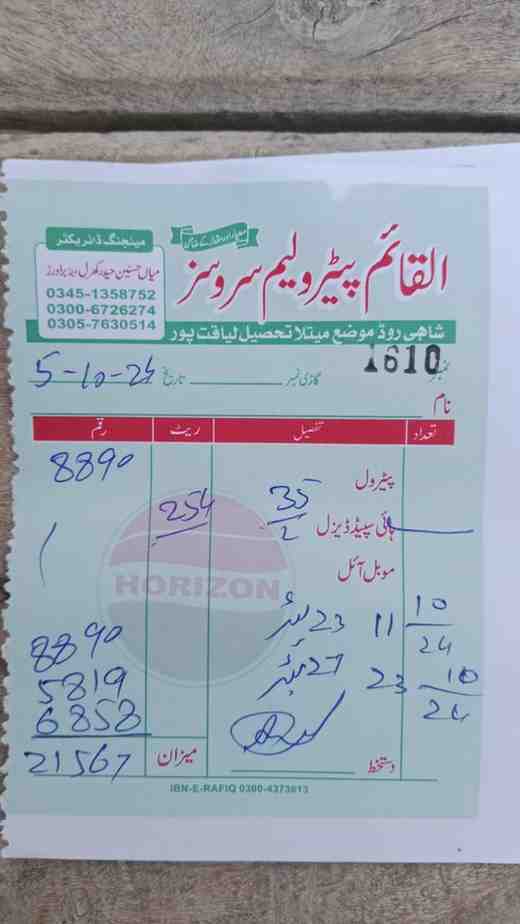 مینجنگ ڈائریکٹر
میاں حسنین حیدر کھرل اینڈ برادرز
0345-1358752
0300-6726274
0305-7630514
القائم پیٹرولیم سروسز
شاہی روڈ موضع میتلا تحصیل لیاقت پور
نمبر 1610
گاڑی نمبر تاریخ 5-10-24
نام
تعداد تفصیل ریٹ رقم
پیٹرول 8890
ہائی سپیڈ ڈیزل 35/2 254
موبل آئل
HORIZON
11 10/24 23 لیٹر
8890
23 10/24 27 لیٹر
5819
6858
میزان 21567
دستخط
IBN-E-RAFIQ 0300-4373613